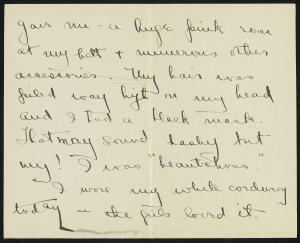 gave me - a huge pink rose
at my belt + numerous other
accessories. My hair was
piled way high on my head
and I had a black mask.
That may sound hashy but
my! I was "beautchous."
I wore my white corduroy
today - the girls loved it.